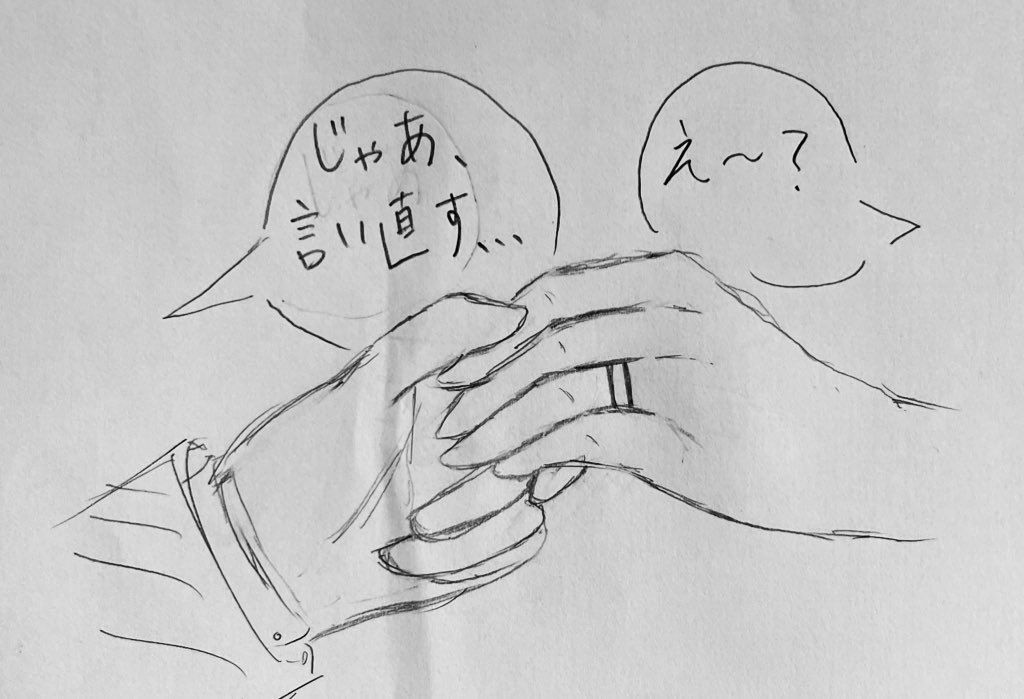 え〜?
じゃあ、
言い直す、、、